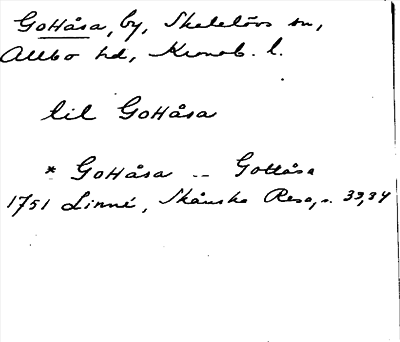 Gottåsa, by, Skatelövs sn,
Allbo hd, Kronob. l.
till Gottåsa
* Gottåsa -- Gottåsa
1751 Linné, Skånska Resa, s. 33,34